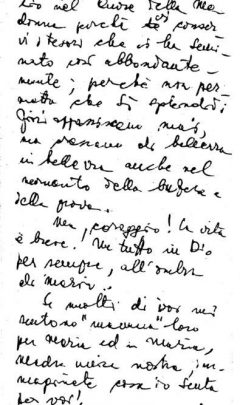 nel Cuore della Ma-
donna perché conser-
vi i tesori che vi ha semi-
nato così abbondante-
mente; perché non per-
metta che sì splendidi
fiori appassiscano mai,
ma crescano di bellezza
in bellezza anche nel
momento della bufera e
della prova.
Ma, coraggio! La vita
è breve! Un tuffo in Dio
per sempre, all'ombra
di Maria.
Se molti di voi mi
sentono "mamma" loro
per Maria ed in Maria,
madre unica nostra, im-
maginate cosa io senta
per voi!